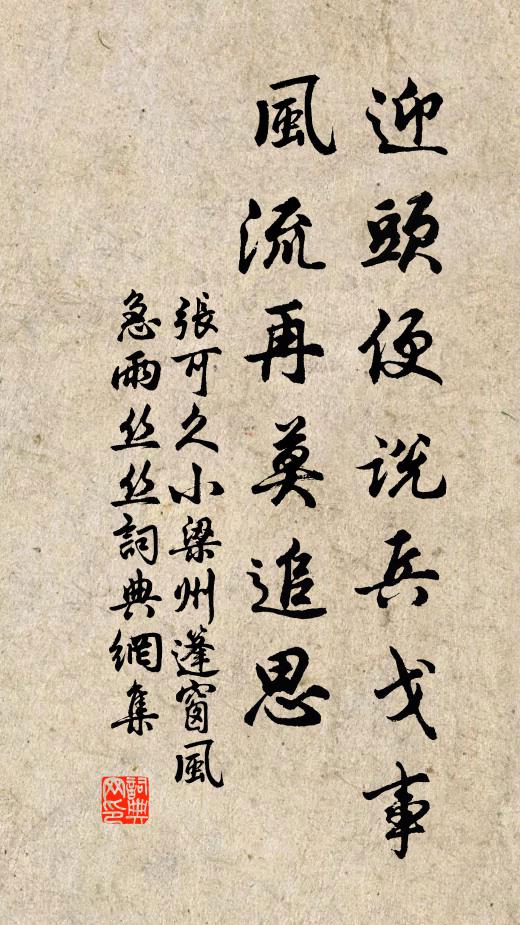 迎頭便説兵戈事
風流再莫追思
張可久小梁州篷窗風
急雨丝丝詞典網集
詞典
网印